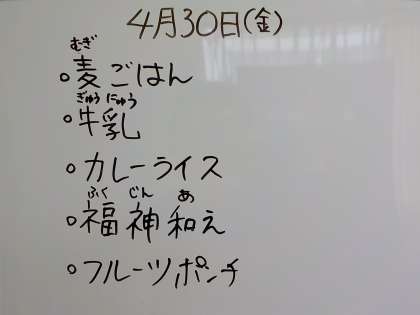 4月30日(金)
むぎ
・麦ごはん
ぎゅうにゅう
・牛乳
・カレーライス
ふくじんあ
・福神和え
・フルーツポンチ